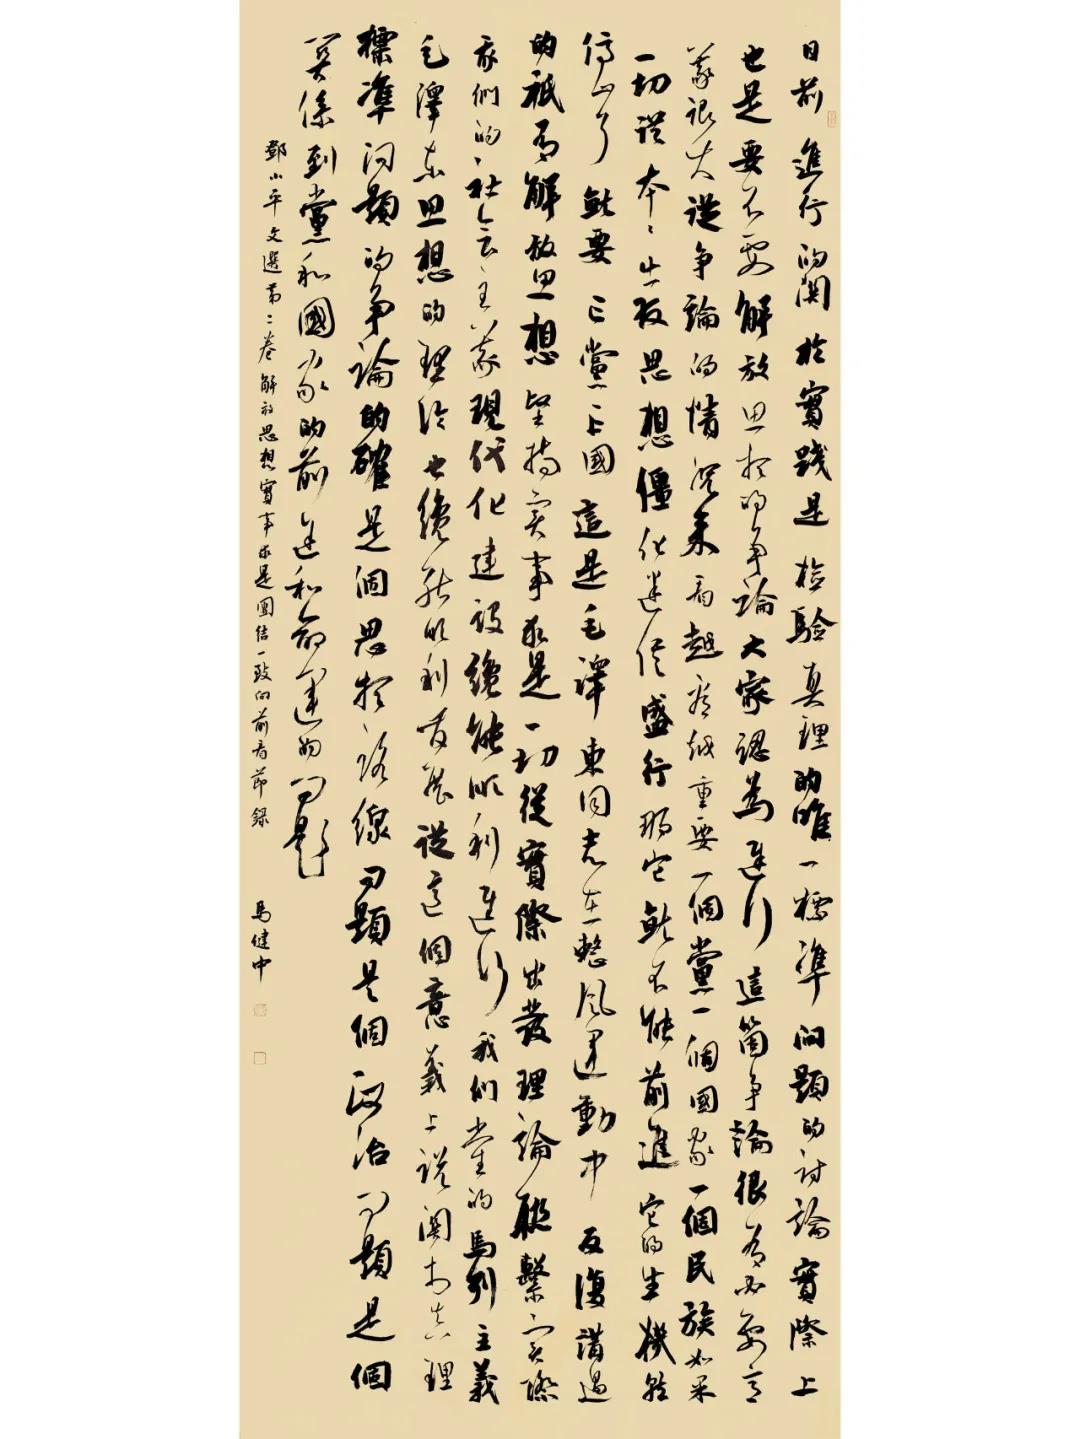 目前進行的關於實踐是檢驗真理的唯一標準問題的討論實際上
也是要不要解放思想的爭論大家認為進行這箇爭論很有必要意
義很大從爭論的情況來看越看越重要一個黨一個國家一個民族如果
一切從本本出發思想僵化迷信盛行那它就不能前進它的生機就
停止了就要亡黨亡國這是毛澤東同志在整風運動中反復講過
的祇有解放思想堅持實事求是一切從實際出發理論聯繫實際
我們的社會主義現代化建設纔能順利進行我們黨的馬列主義
毛澤東思想的理論也纔能順利發展從這個意義上說關於真理
標準問題的爭論的確是個思想路線問題是個政治問題是個
關係到黨和國家的前途和命運的問題
鄧小平文選第二卷解放思想實事求是團結一致向前看節錄
馬健中